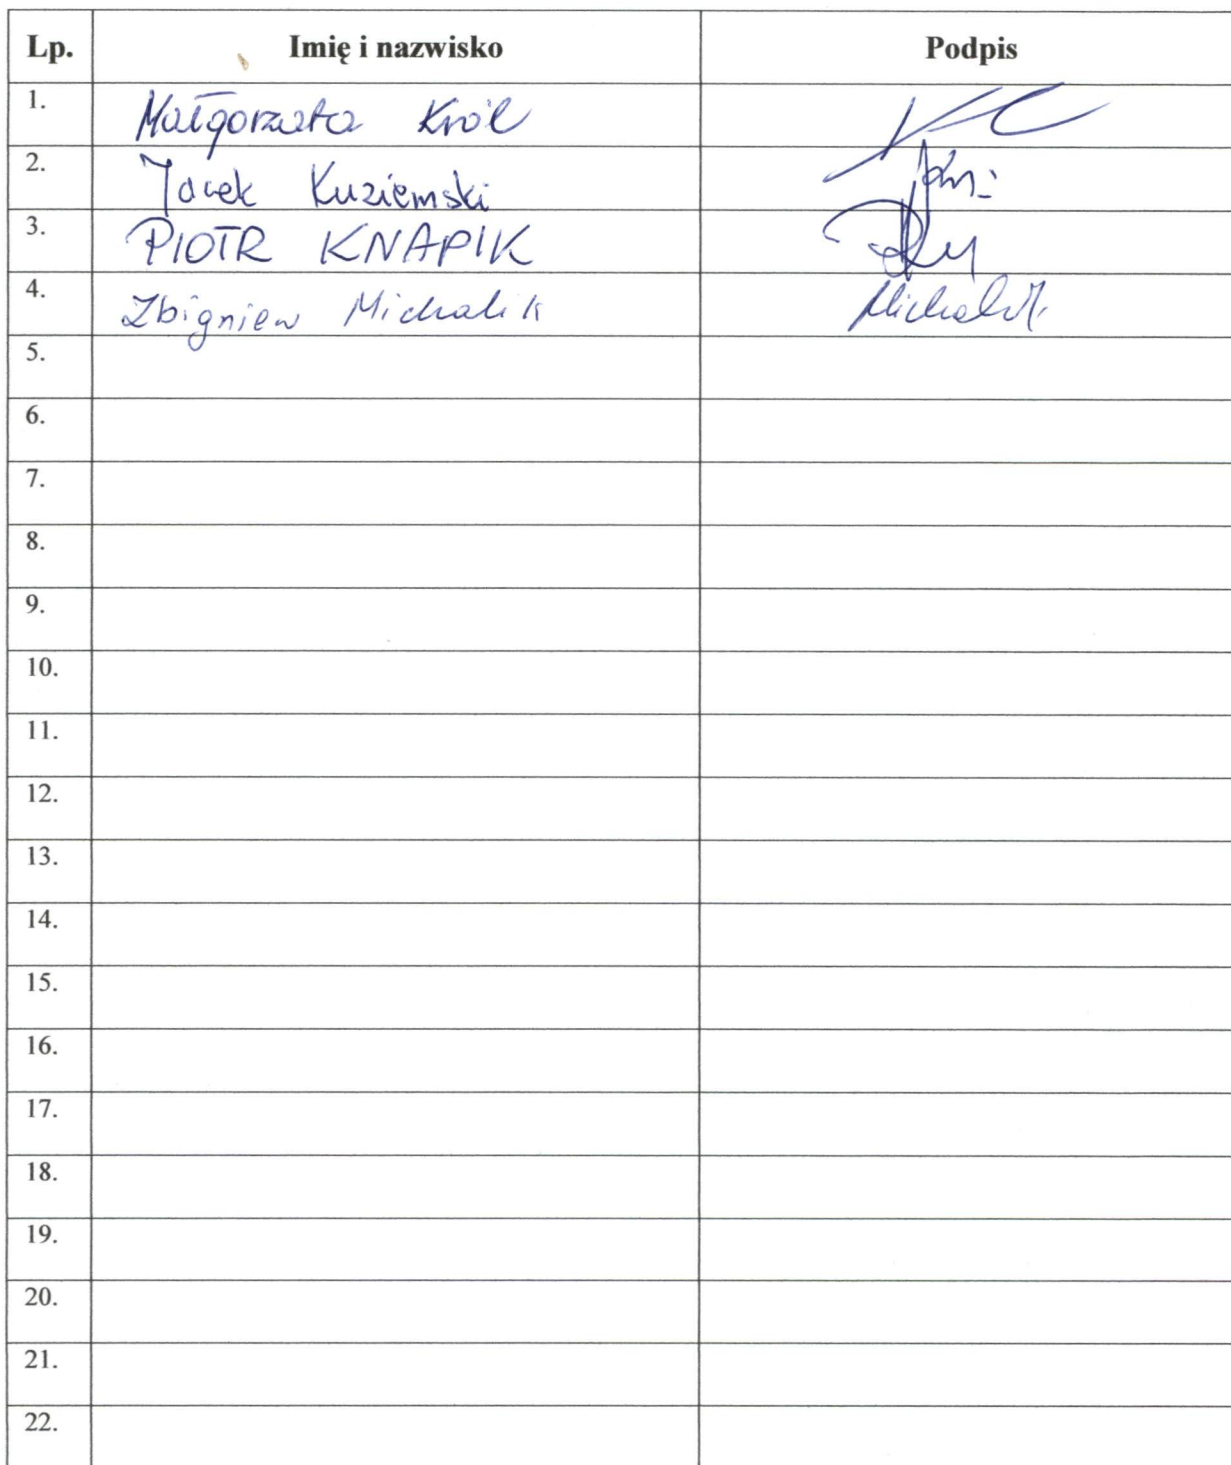 Lp. Imię i nazwisko Podpis
1. Małgorzata Król
2. Jacek Kuziemski
3. PIOTR KNAPIK
4. Zbigniew Michalik Michalik
5.
6.
7.
8.
9.
10.
11.
12.
13.
14.
15.
16.
17.
18.
19.
20.
21.
22.